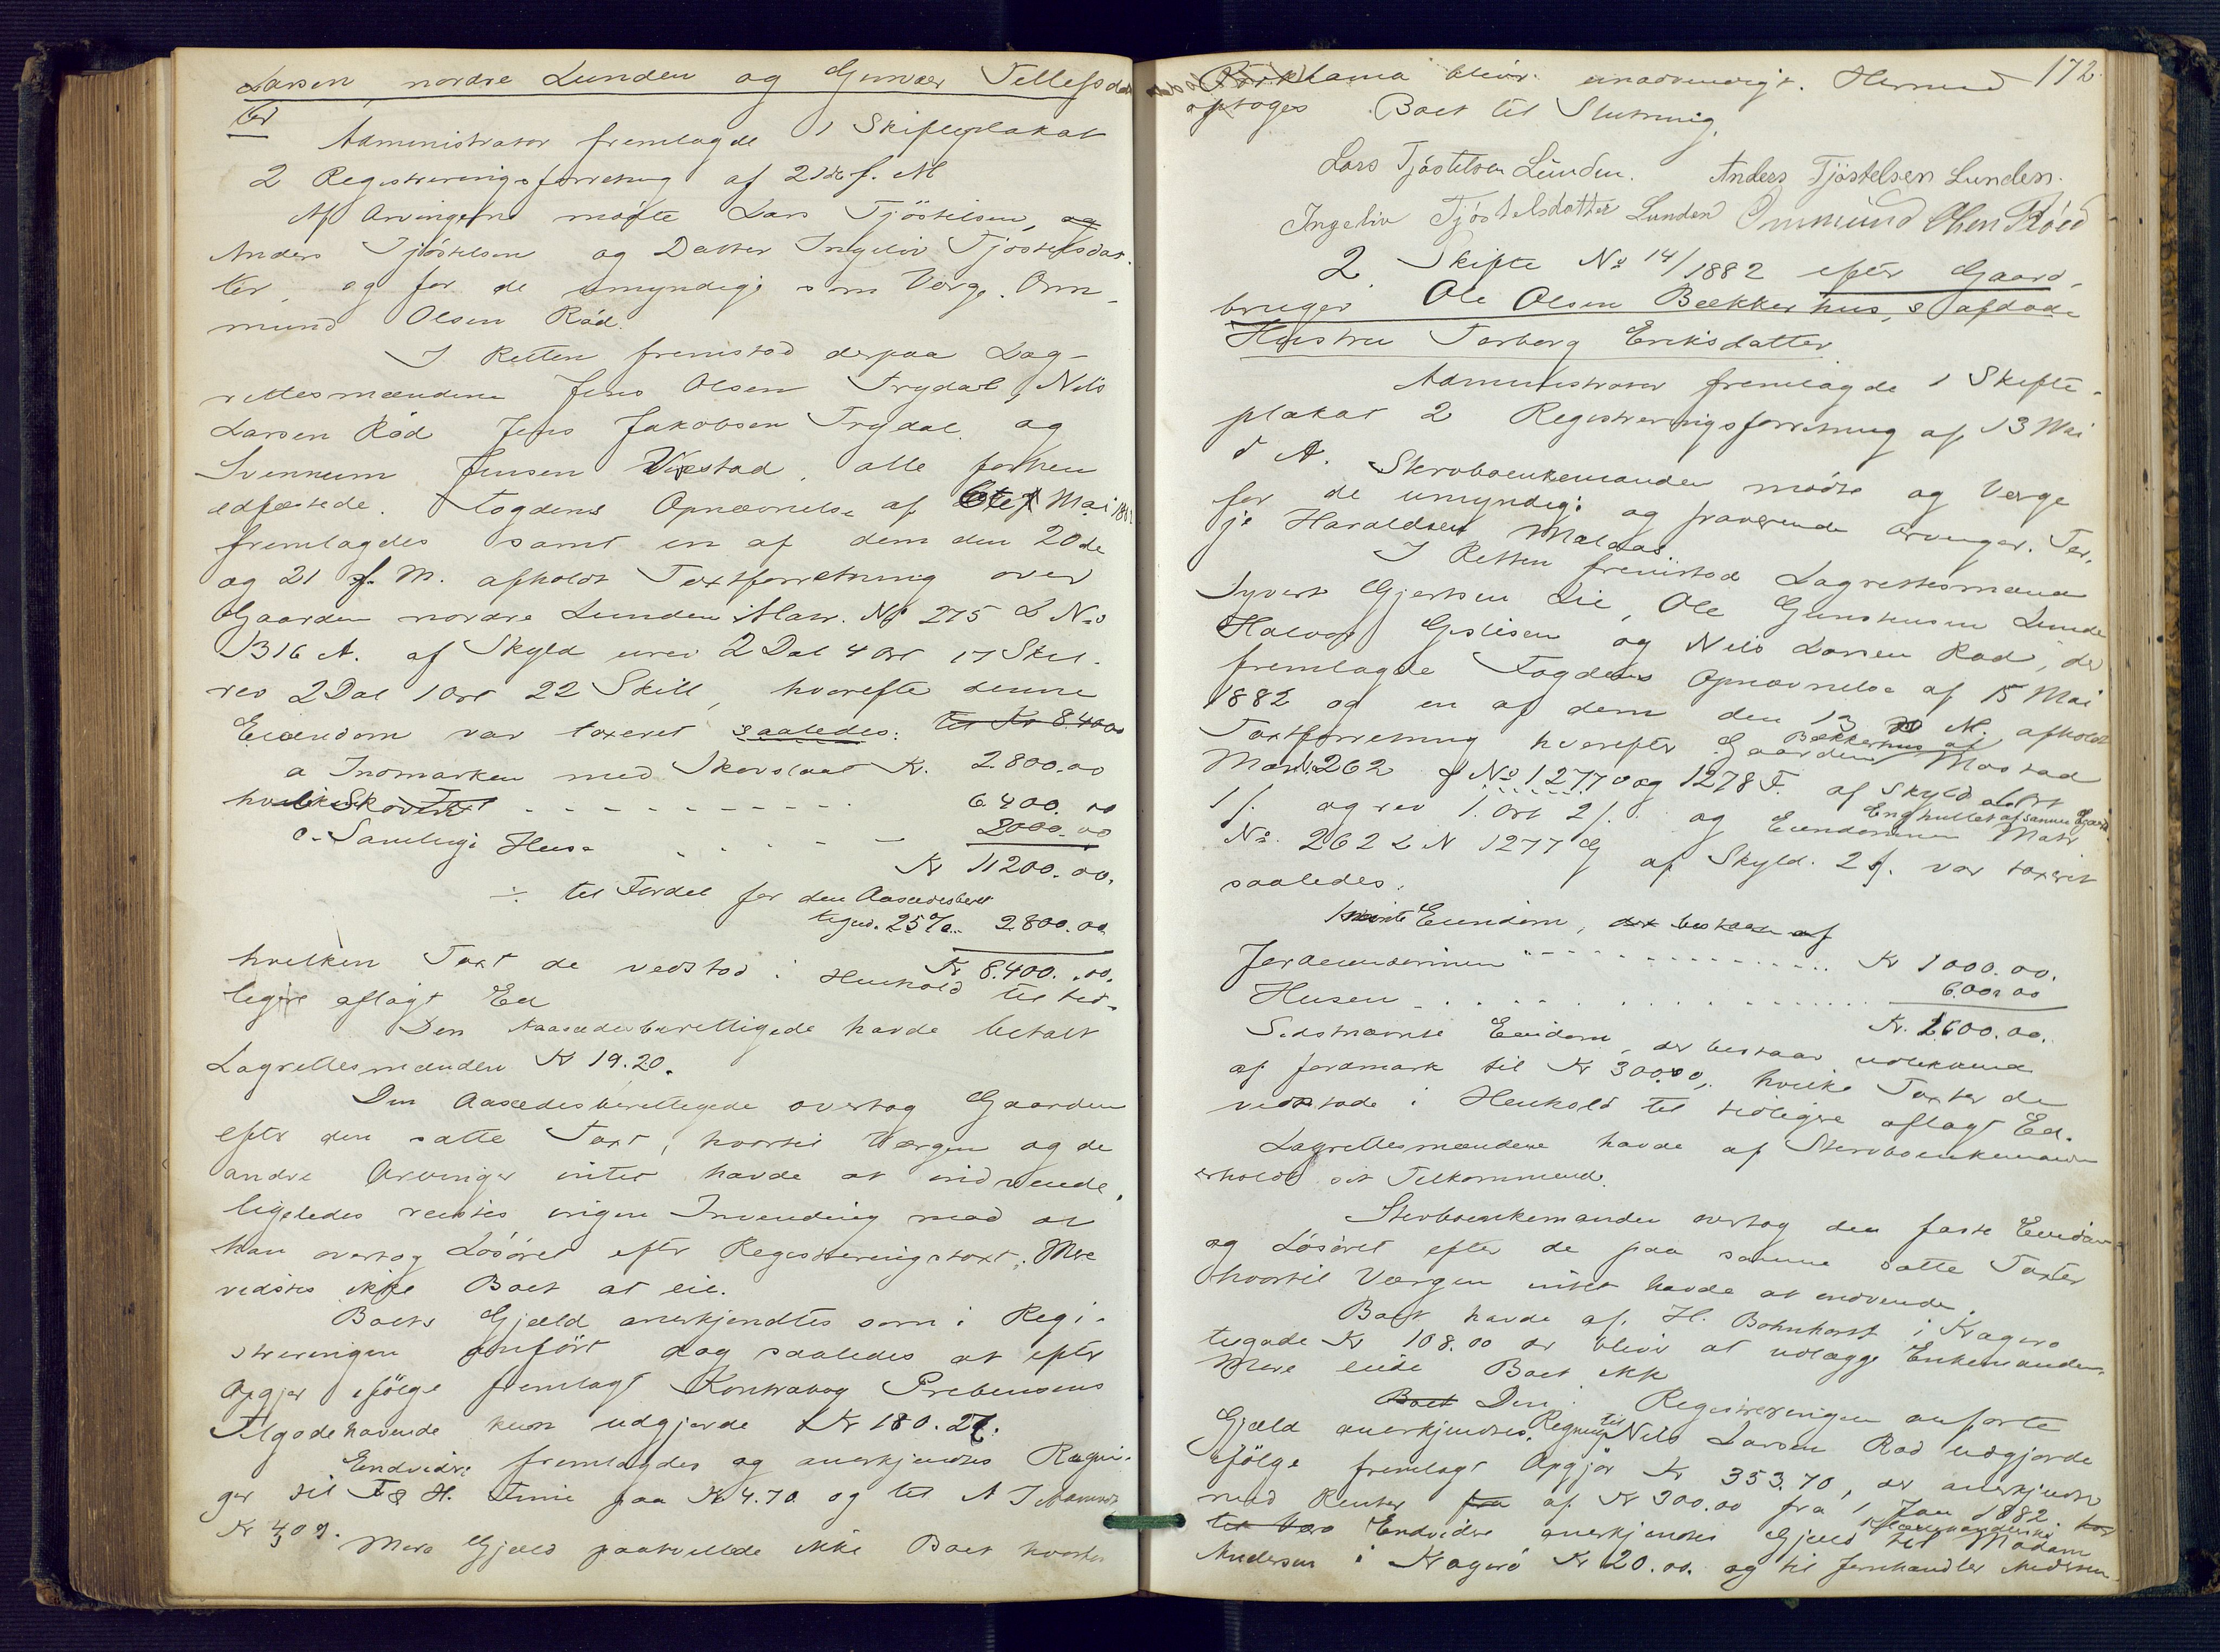 Larsen, nordre Lunden og Gunvær Tellefsdat
ter
Administrator fremlagde 1 Skifteplakat
2 Registreringsforretning af 21de f. M
Af Arvingerne mødte Lars Tjöstelsen, og
Anders Tjöstelsen og Datter Ingeliv Tjöstelsdat-
ter, og for de umyndige som Verge Om-
mund Olsen Röd.
I Retten fremstod derpaa Lag-
rettesmændene Jens Olsen Trydal, Nils
Larsen Röd Jens Jakobsen Trydal og
Svennum Jensen Vrestad, alle forhen
edfæstede. Fogdens Opnævnelse af Mai
fremlagdes samt en af dem den 20de
og 21 f. M. afholdt Taxtforretning over
Gaarden nordre Lunden Matr. No 275 L No
1316 A. af Skyld urev 2 Dal 4 Ort 17 Skil.
rev 2 Dal 1 Ort 22 Skill, hvorefter denne
Eiendom var taxeret saaledes: til Kr 8.400
a Indmarken med Skovslaat Kr. 2.800.00
Skoven - - - - - - - - - - 6.400.00
c. Samtlige Huse . . . - - 2000.00
Kr 11200.00.
÷ til Fordel for den Aasædesberet
tiged. 25% .. 2.800.00
Kr 8.400.00.
hvilken Taxt de vedstod i Henhold til tid-
ligere aflagt Ed
Den Aasædesberettigede havde betalt
Lagrettesmændene Kr 19.20.
Den Aasædesberettigede overtog Gaarden
efter den satte Taxt, hvortil Værgen og de
andre Arvinger intet havde at indvende,
ligeledes reistes ingen Invending mod at
han overtog Lösöret efter Registreringstaxt. Mere
vidstes ikke Boet at eie.
Boets Gjæld anerkjendtes som i Regi-
streringen anfört dog saaledes at efter
Opgjør ifölge fremlagt Kontrabog Prebensens
Tilgodehavende kun udgjorde Kr 180.27.
Endvidere fremlagdes og anerkjendtes Regnin-
ger til T & H. paa Kr 4.70 og til A
Kr 409.
Mere Gjæld paahvilede ikke Boet hvorfor
172
Proklama bliver unødvendigt. Hermed
optoges Boet til Slutning.
Lars Tjöstelsen Lunden. Anders Tjöstelsen Lunden.
Ingeliv Tjöstelsdatter Lunden Ommund Olsen Röed
2. Skifte No 14/1882 efter Gaard-
bruger Ole Olsen Bækkerhus, s afdöde
Hustru Torborg Eriksdatter
Administrator fremlagde 1 Skifte-
plakat 2 Registreringsforretning af 13 Mai
d A. Stervboenkemanden mødte og Verge
for de umyndige og fraværende Arvinger. Ter-
je Haraldsen
I Retten fremstod Lagrettesmænd
Syvert Gjertsen Lie, Ole Gunstensen Lunde
Halvor Gislesen og Nils Larsen Röd, de
fremlagde Fogdens Opnævnelse af 15 Mai
1882 og en af dem den 13 M. afholdt
Taxtforretning hvorefter Gaarden Bækkerhus af Mostad
Matr. 262 L No 1277 og 1278 F. af Skyld Ort
1 f. og rev 1 Ort 2 f. og Eiendommen Enghullet af samme Gaard Matr
No. 262 L N 1277 G af Skyld. 2 f. var taxeret
saaledes.
Eiendom, der bestaar af
Jordeiendommen - - - - - - - - - - Kr 1000.00.
Husene - . . . . . . . . . . . . . . 600.00
Kr. 1600.00.
Sidstnævnte Eiendom, der bestaar udelukkende
af Jordmark til Kr 300.00, hvilke Taxter de
vedstode i Henhold til tidligere aflagt Ed.
Lagrettesmændene havde af Stervboenkemanden
erholdt sit Tilkommende.
Stervboenkemanden overtog den faste Eiendom
og Lösöret efter de paa samme satte Taxter
hvortil Værgen intet havde at indvende.
Boet havde af. H. Bohnhorst i Kragerø
tilgode Kr 108.00 der blive at udlægge Enkemanden.
Mere eiede Boet ikke
Boet Den i Registreringen anførte
Gjæld anerkjendtes. Regning til Nils Larsen Röd udgjorde
ifölge fremlagt Opgjör Kr 353.70, der anerkjendtes
med Renter fra af Kr 300.00 fra 1 Jan 1882.
Endvidere anerkjendtes Gjæld til Madam
Andersen i Kragerö Kr 20.00. og til Jernhandler Andersen